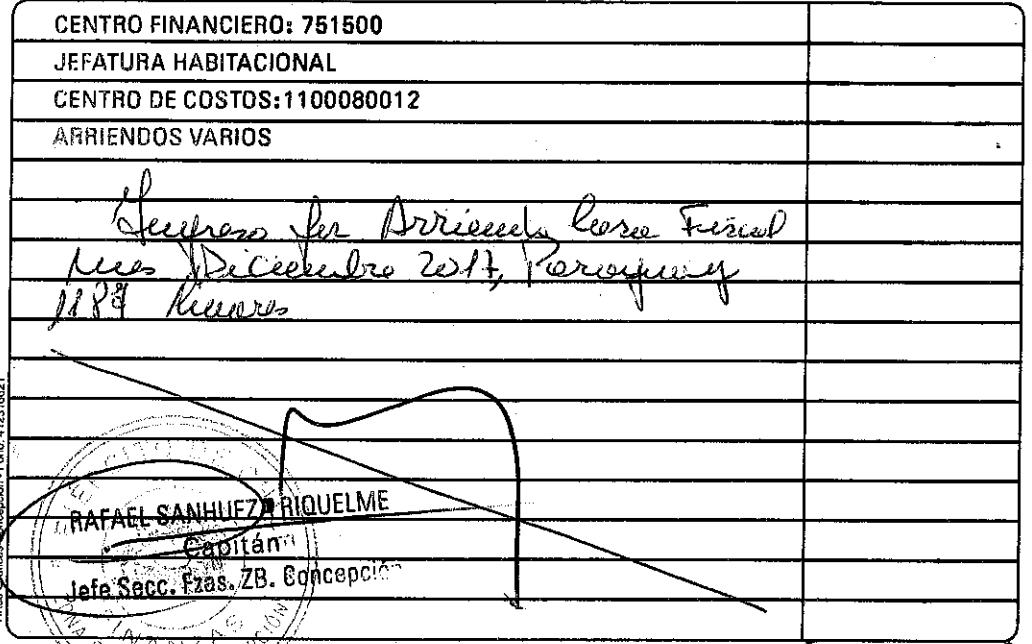 CENTRO FINANCIERO: 751500
JEFATURA HABITACIONAL
CENTRO DE COSTOS:1100080012
ARRIENDOS VARIOS
Ingreso por Arriendo Casa Fiscal
Mes Diciembre 2017, Paraguay
1187 Linares
RAFAEL SANHUEZA RIQUELME
Capitán
Jefe Secc. Fzas. ZB. Concepción